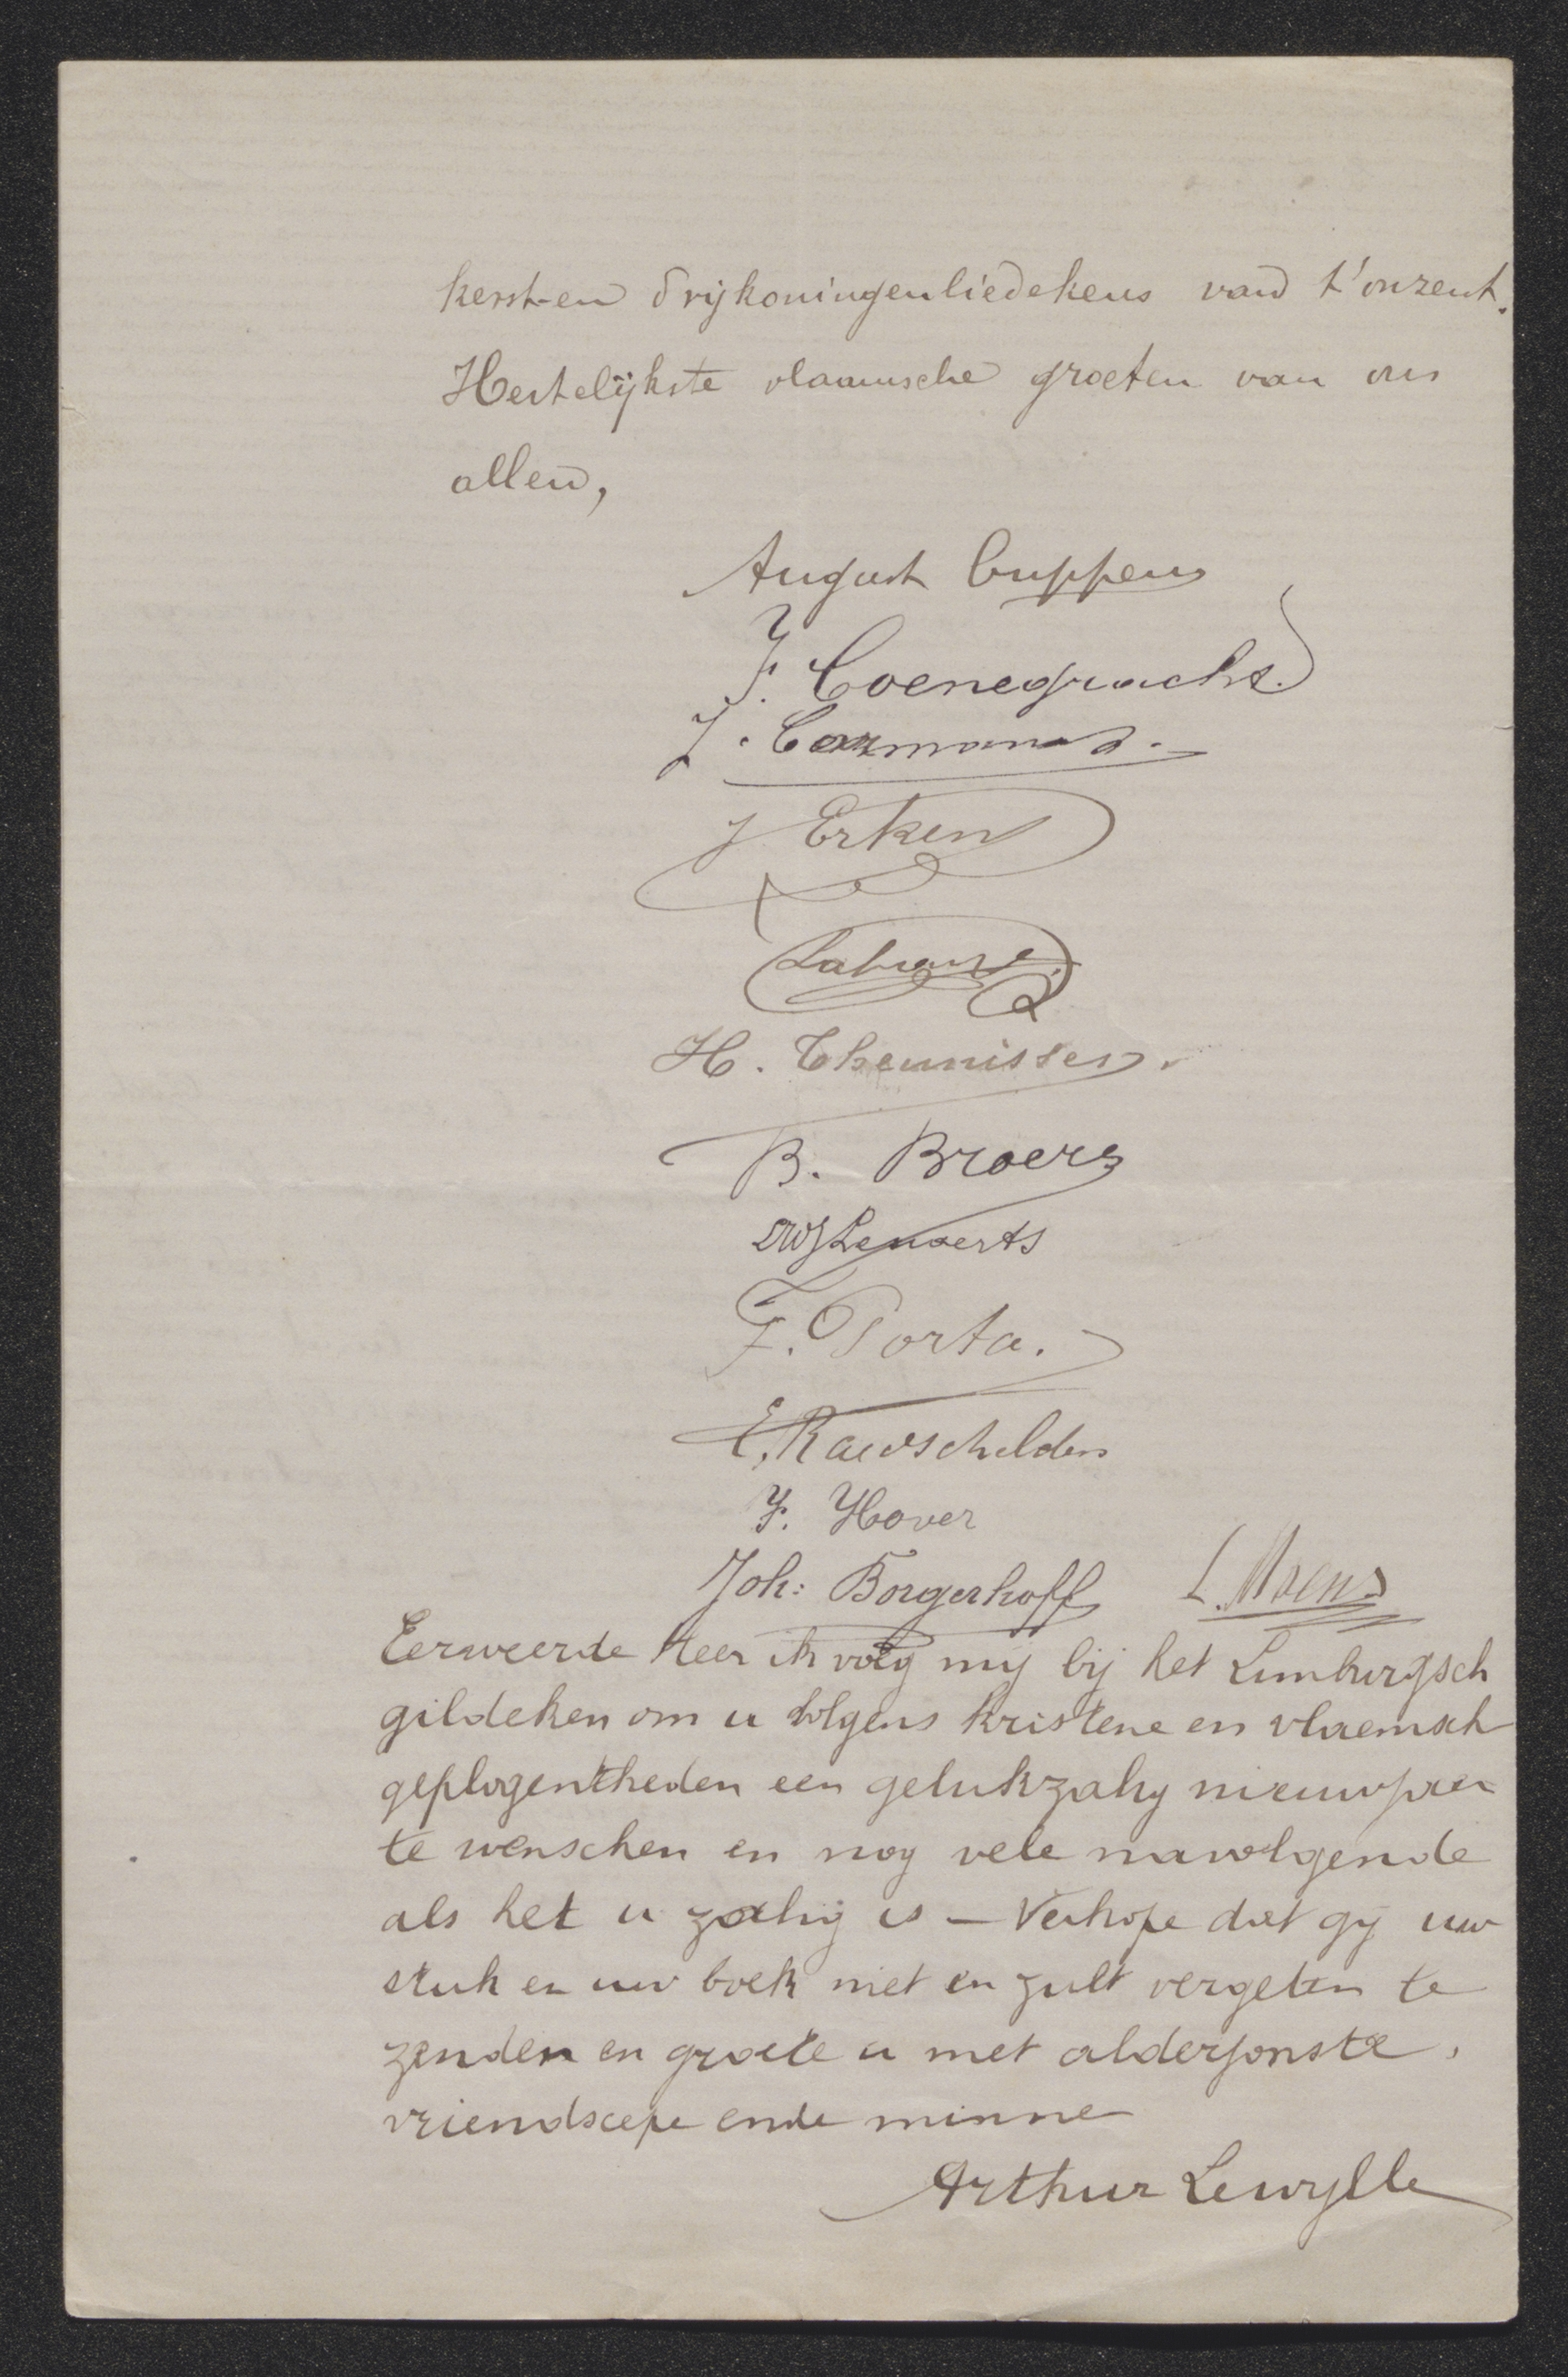 kerst-en drijkoningenliedekens van t'onzent.
Hertelijkste vlaamsche groeten van ons
allen,
August Cuppens
J. Coenegracht
J.
J Erken
H. Theunissen.
B. Broers
Lenaerts
F. Porta.
E. Rauschelden
J. Hover
Joh: Borgerhoff
Eerweerde Heer ik voeg mij bij het Limburgsch
gildeken om u volgens kristene en vlaemsch
geplogentheden een gelukzalig nieuwjaer
te wenschen en nog vele navolgende
als het u zalig is – Verhope dat gij uw
stuk en uw boek niet en zult vergeten te
zenden en groete u met alderjonste,
vriendscepe ende minne
Arthur Lewylle